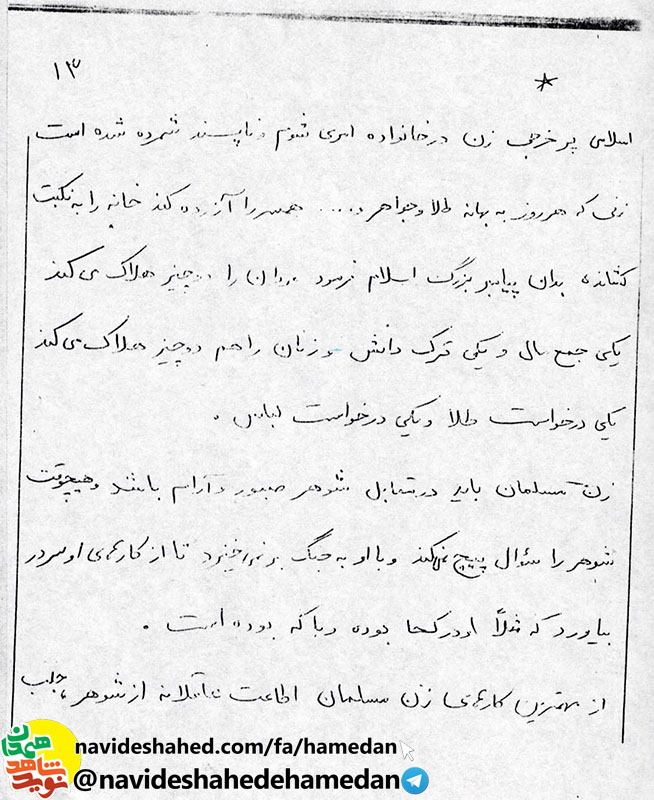 ۱۳
اسلامی پر خرجی زن در خانواده امری شوم و ناپسند شمرده شده است
زنی که هر روز به بهانه طلا و جواهر و .... همسر را آزرده کند خانه را به نکبت
کشانده بدان پیامبر بزرگ اسلام فرمود مردان را دو چیز هلاک می کند
یکی جمع مال و یکی ترک دانش و زنان را هم دو چیز هلاک می کند
یکی درخواست طلا و یکی درخواست لباس .
زن مسلمان باید در مقابل شوهر صبور و آرام باشد و هیچوقت
شوهر را سئوال پیچ نمی کند و با او به جنگ بر نمی خیزد تا از کارهای او سر در
بیاورد که مثلاً او در کجا بوده و با که بوده است .
از بهترین کارهای زن مسلمان اطاعت عاقلانه از شوهر ، جلب
navideshahed.com/fa/hamedan
@navideshahedehamedan
نوید شاهد همدان